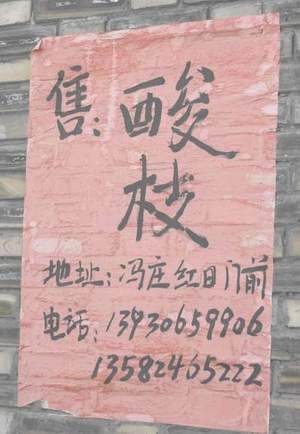 售：酸
枝
地址：冯庄红日门前
电话：13930659906
13582465222